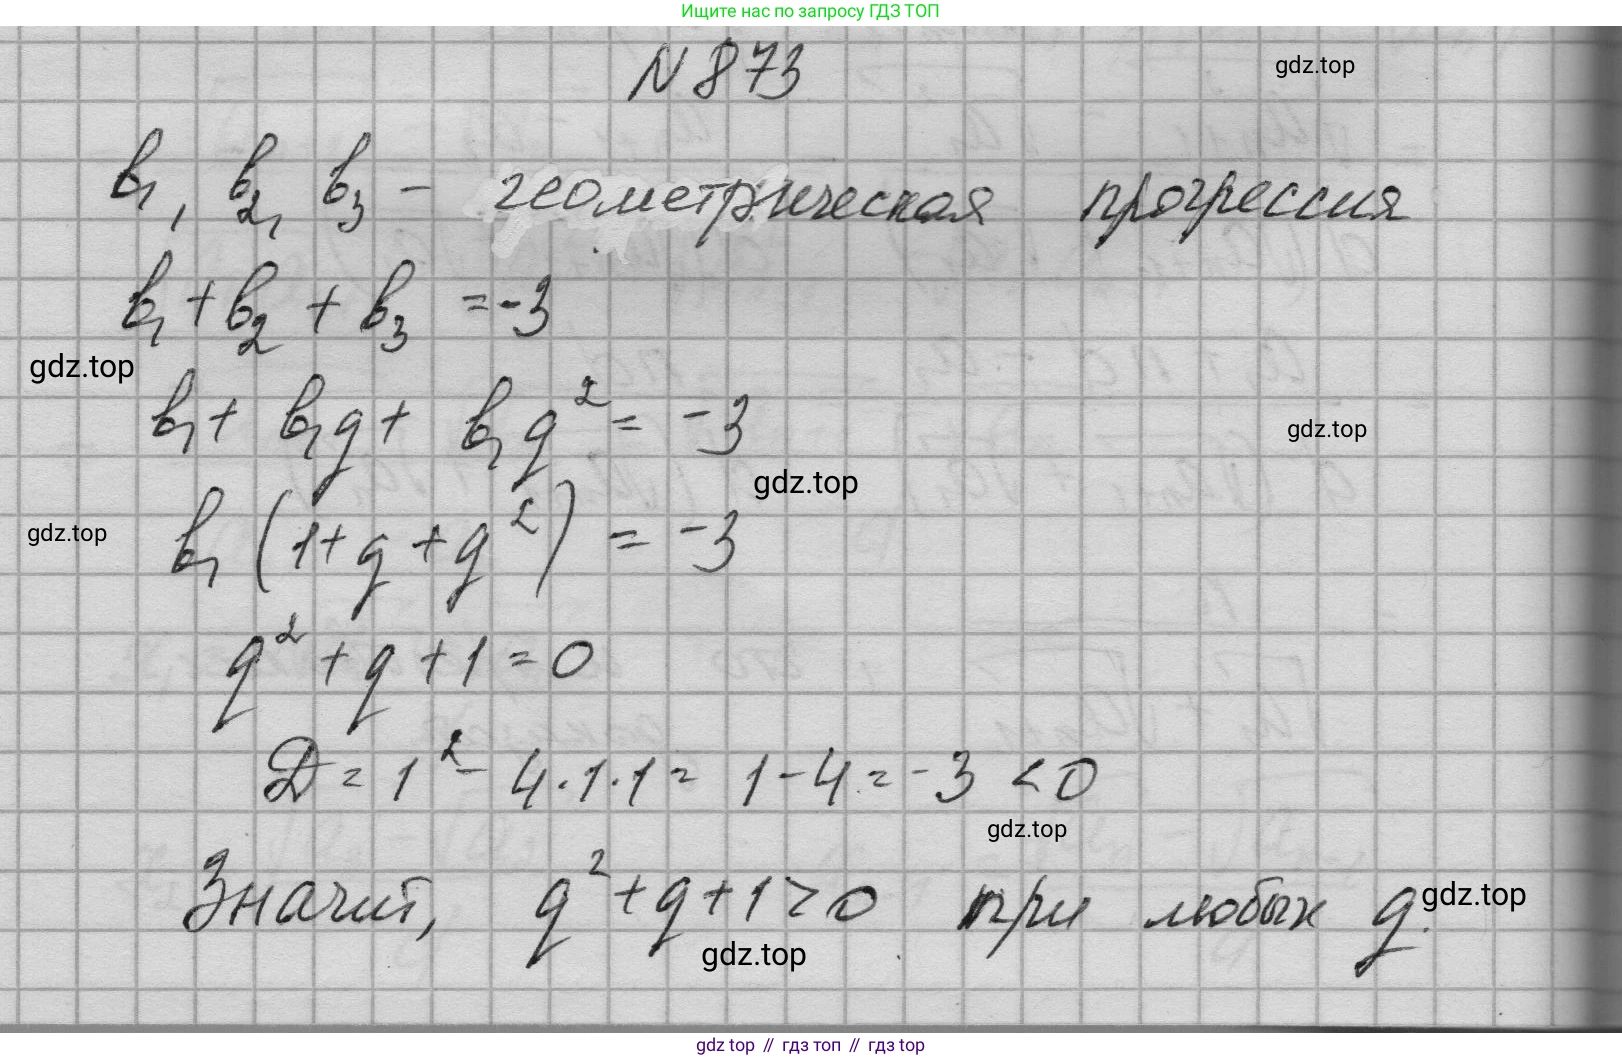 Ищите нас по запросу ГДЗ ТОП
N 873
gdz.top
b₁, b₂, b₃ - геометрическая прогрессия
b₁ + b₂ + b₃ = -3
gdz.top
b₁ + b₁q + b₁q² = -3
gdz.top
gdz.top
gdz.top
b₁ (1 + q + q²) = -3
q² + q + 1 = 0
D = 1² - 4·1·1 = 1 - 4 = -3 < 0
gdz.top
Значит, q² + q + 1 > 0 при любых q.
gdz.top
gdz.top
gdz top // гдз топ // гдз top